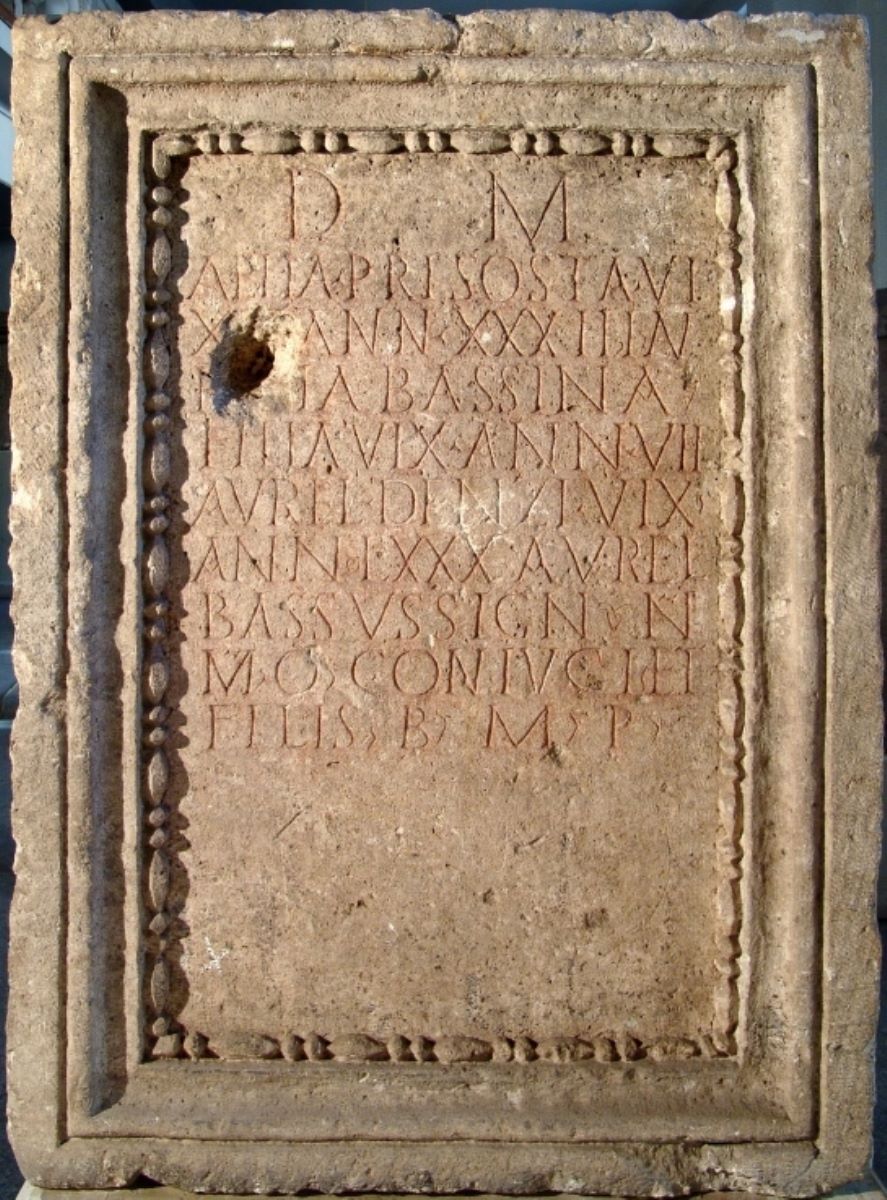 D M
PRISOSTA·VI
ANN·XXXIII
BASSINA
FILIA·VIX·ANN·VII
AVREL·DENZI·VIX
ANN·LXXX·AVREL
BASSVS SIGN N
M·O·CONIVGI·ET
FILIS B M P